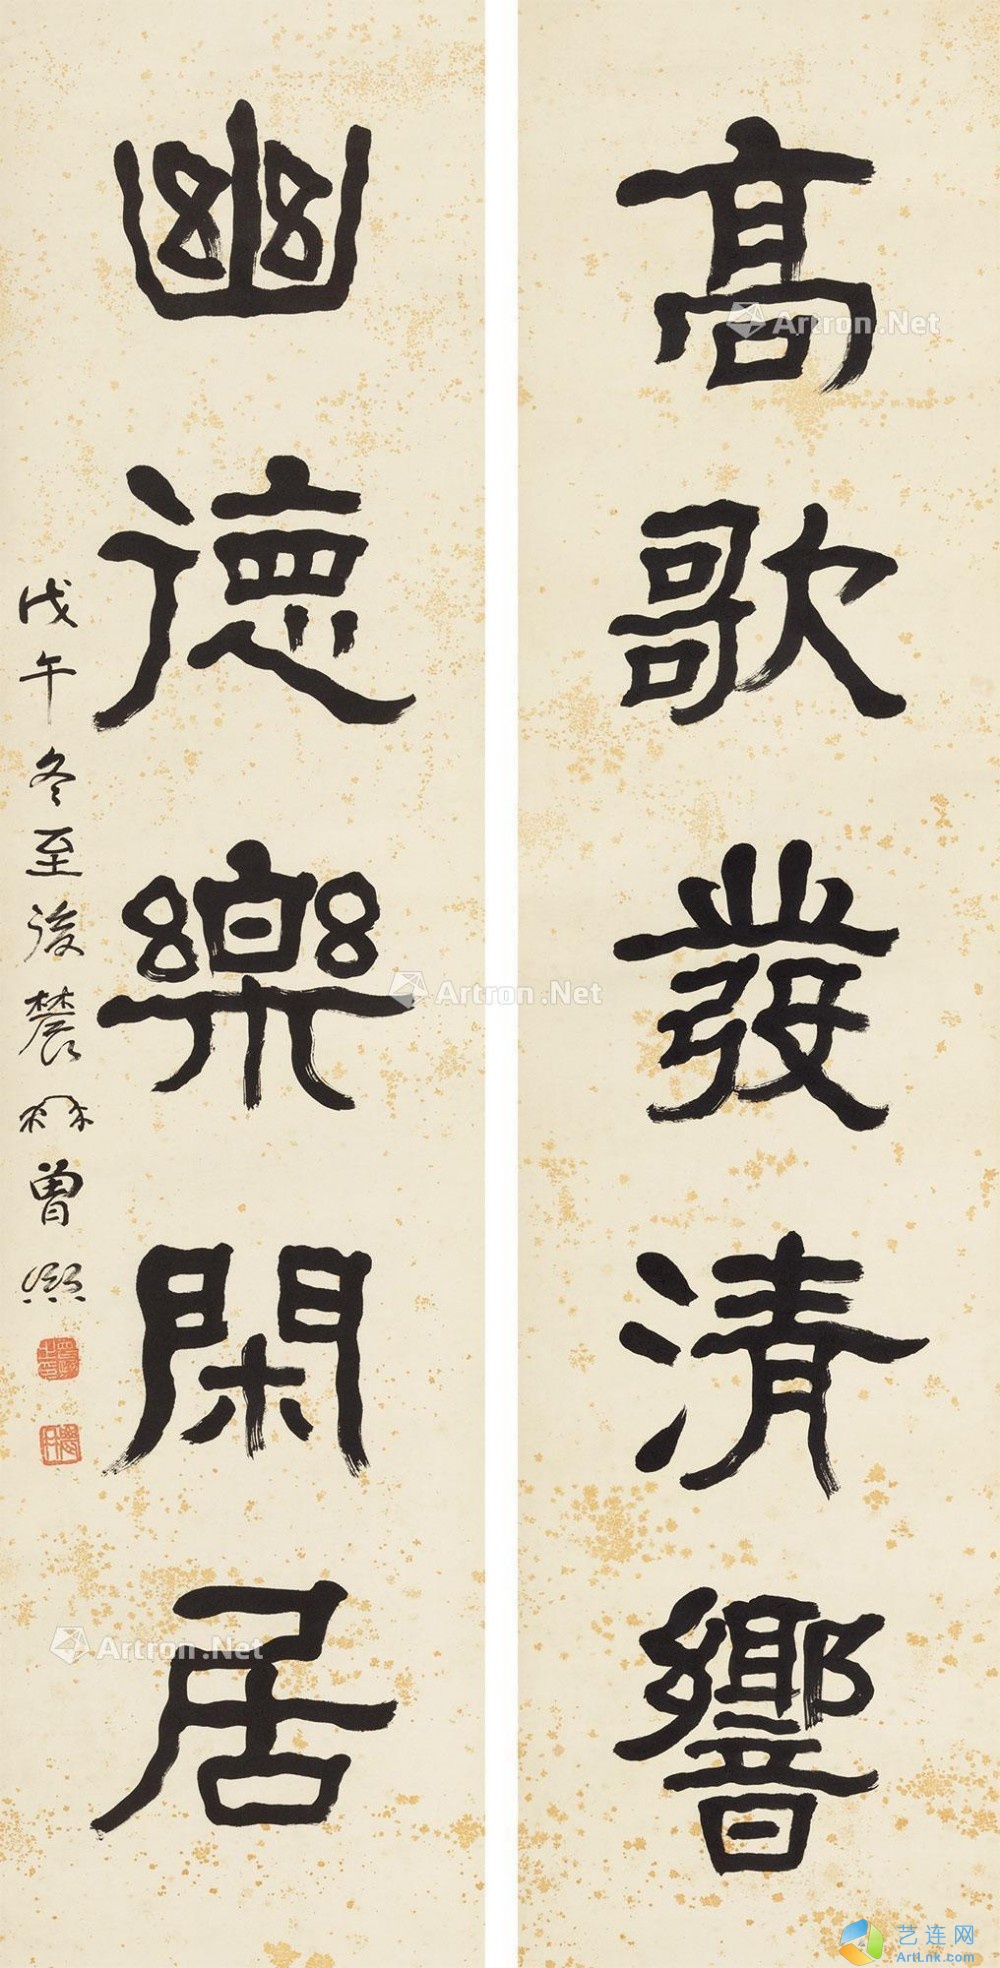 高歌發清響
幽德樂閑居
戊午冬至後農髯曾熙
Artron.Net
Artron.Net
Artron.Net
艺连网
ArtLnk.com